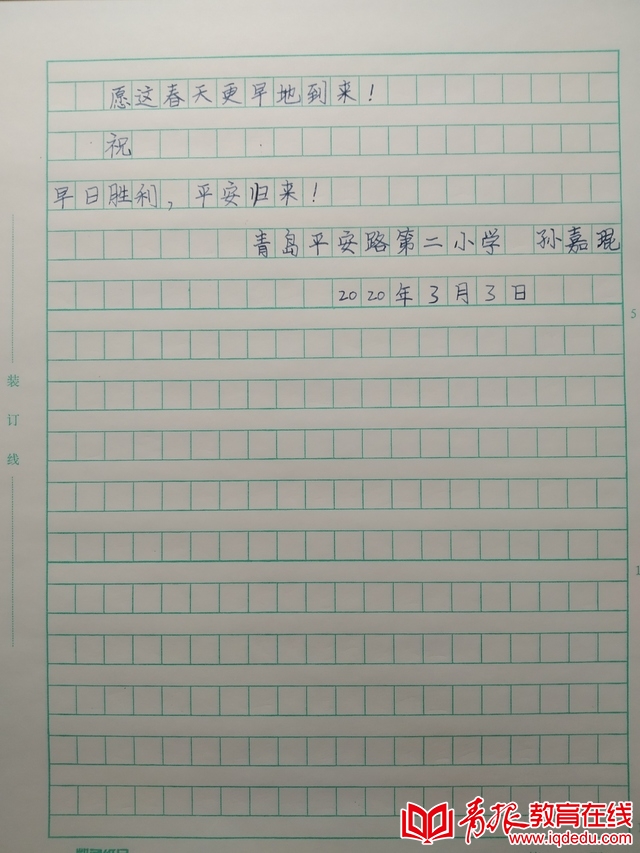 愿这春天更早地到来！
祝
早日胜利，平安归来！
青岛平安路第二小学 孙嘉琨
2020年3月3日
5
装订线
1
青报教育在线
www.iqdedu.com